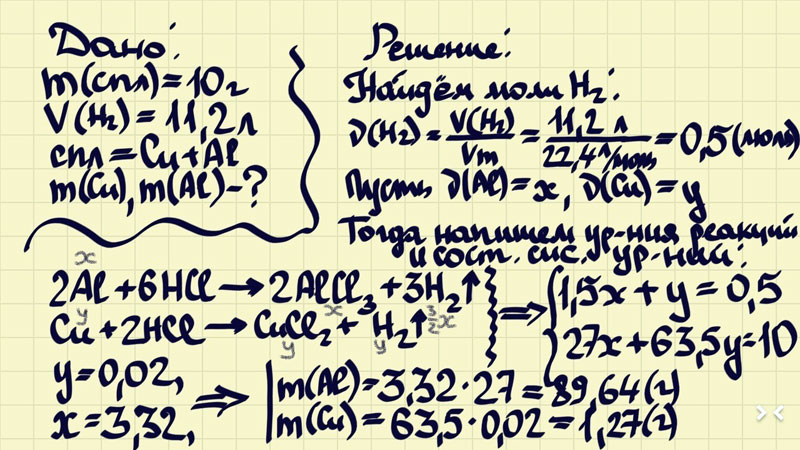 Дано:
m(спл)=10г
V(H₂)=11,2л
спл=Cu+Al
m(Cu), m(Al)-?
Решение:
Найдём моли H₂:
ν(H₂)=V(H₂)/Vm=11,2 л/22,4 л/моль=0,5(моль)
Пусть ν(Al)=x, ν(Cu)=y
Тогда напишем ур-ния реакций
и сост. сис. ур-ний:
x x 3/2x
2Al+6HCl→2AlCl₃+3H₂↑
y y y
Cu+2HCl→CuCl₂+H₂↑
⇒{1,5x+y=0,5
27x+63,5y=10
y=0,02,
x=3,32,
⇒|m(Al)=3,32·27=89,64(г)
m(Cu)=63,5·0,02=1,27(г)